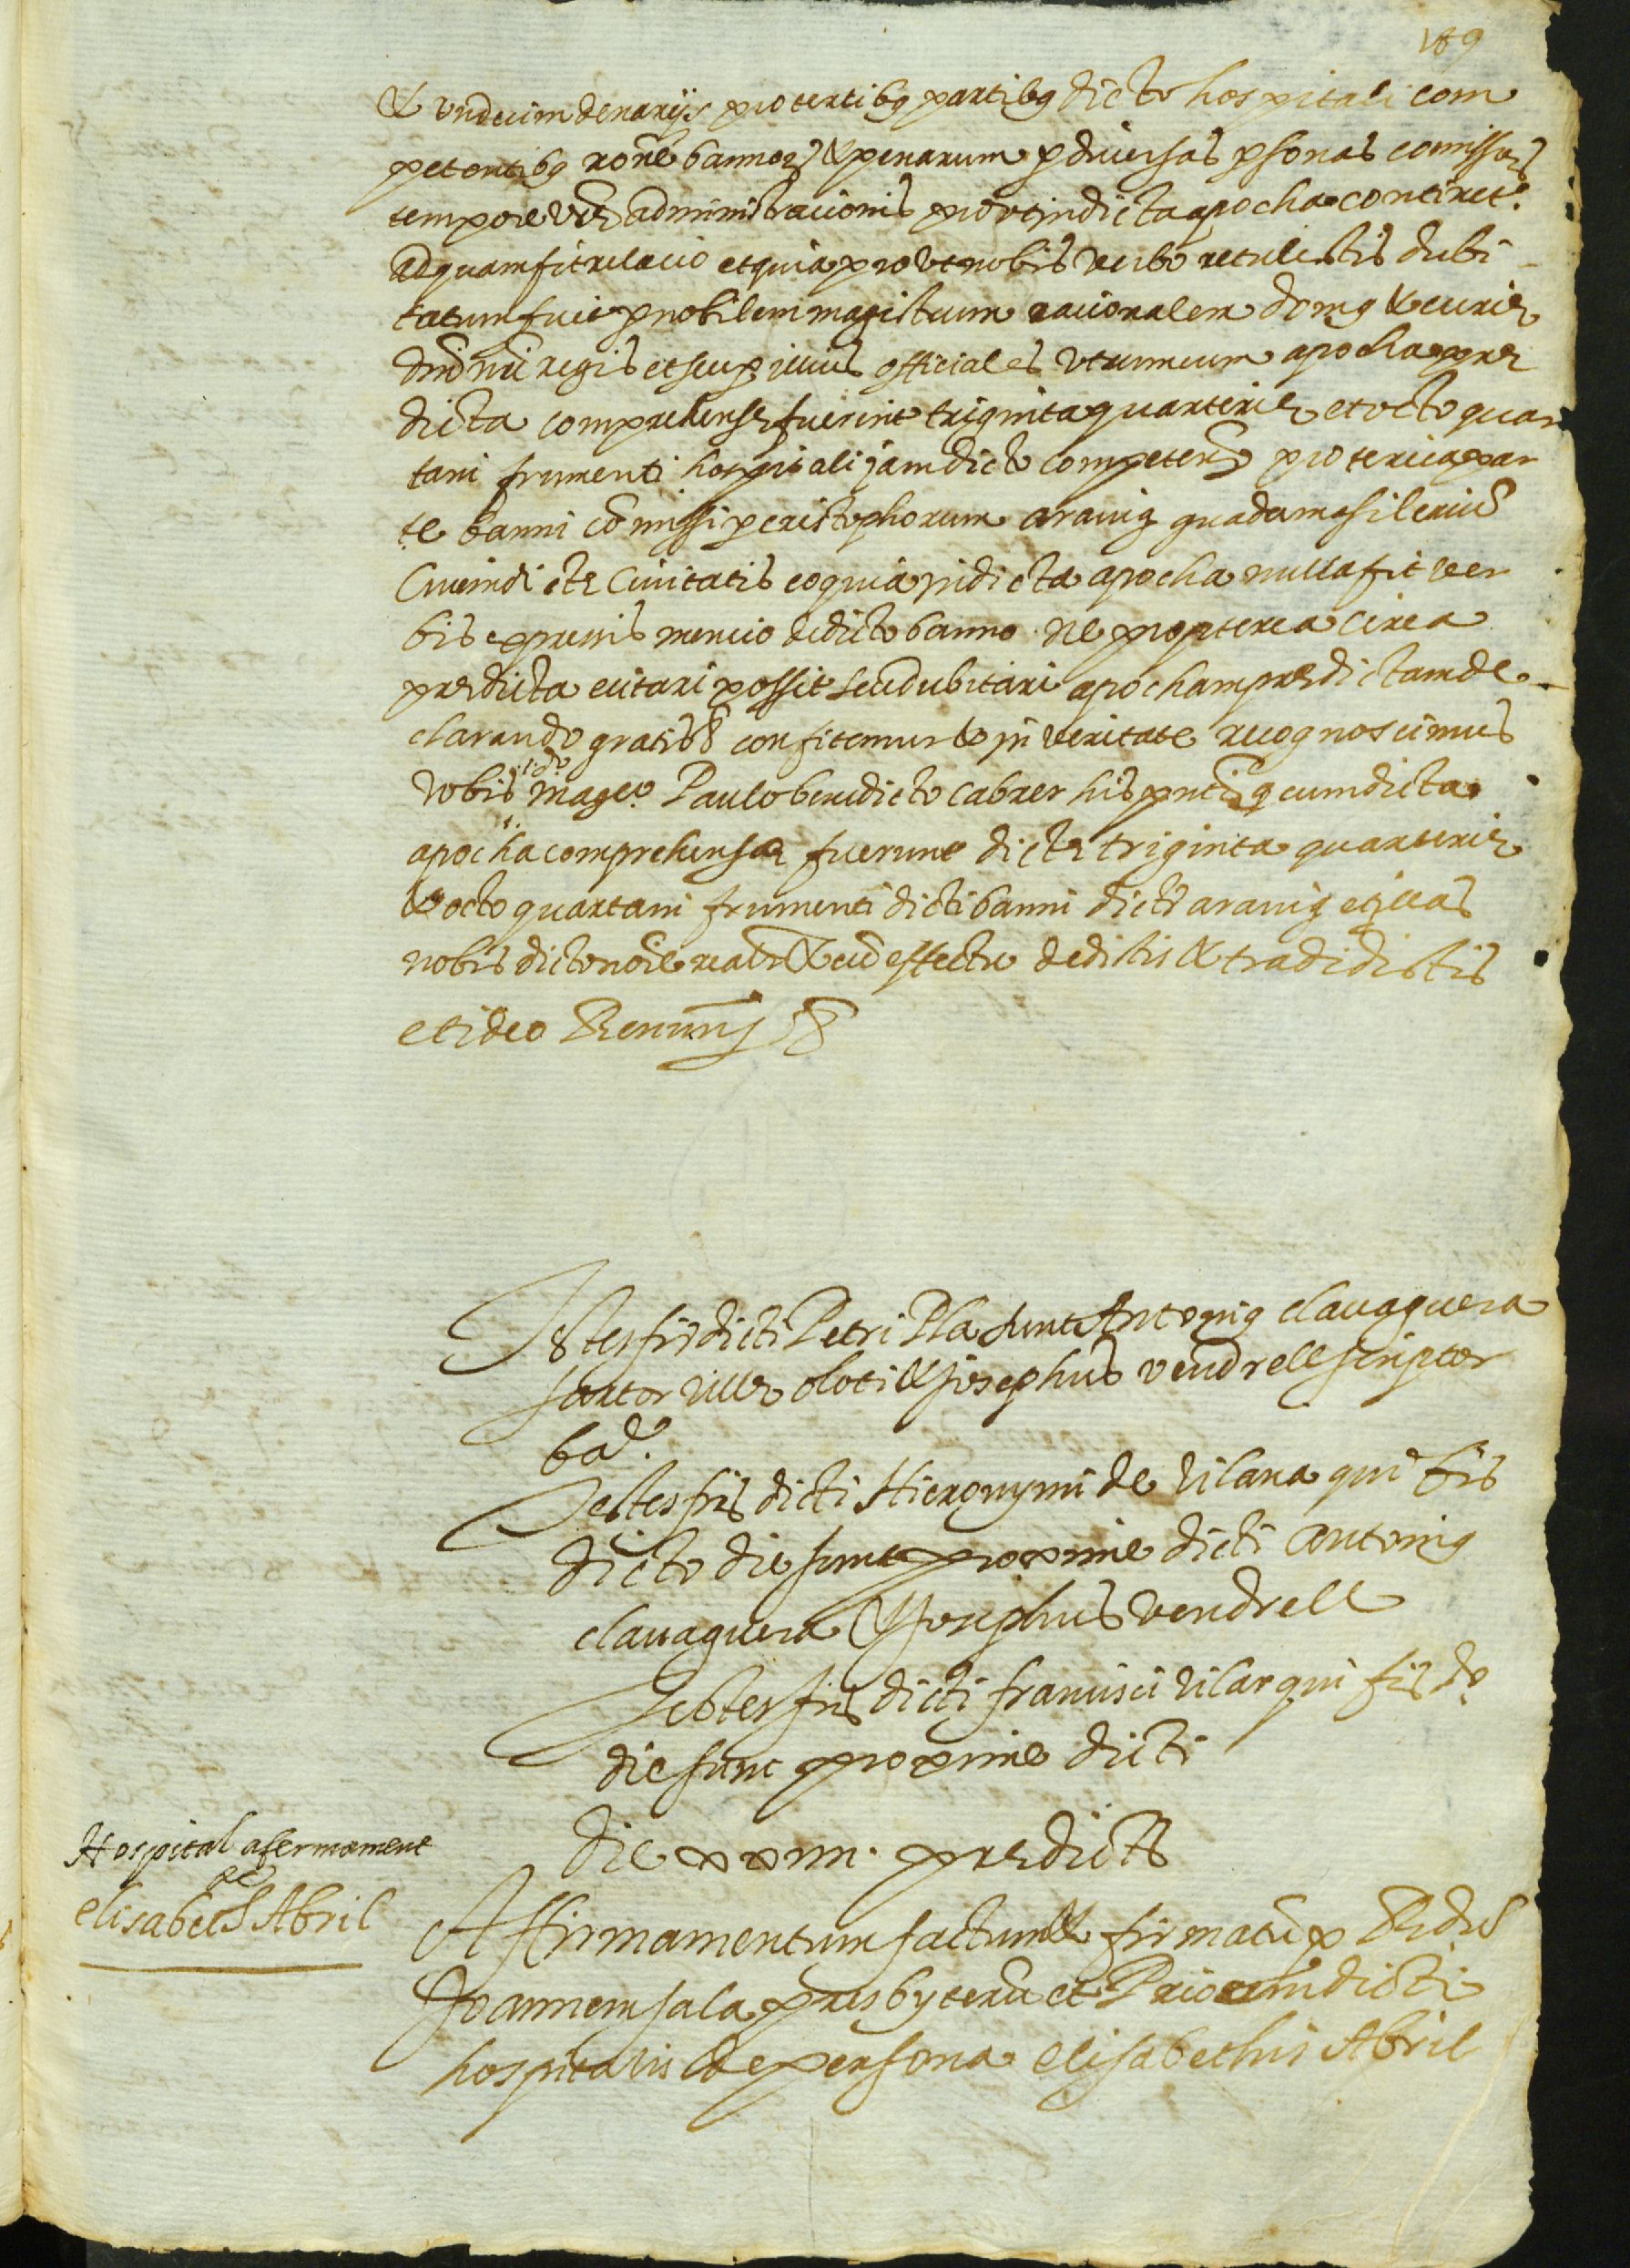 189
& undecim denarijs pro tertibq partibq dicto hospitali com
petentibq rone bannoꝝ & penarum p diuersas psonas comissaꝝ
tempore vre administracionis prout in dicta apocha continet.
ad quam fit relacio et quia prout nobis verbo retulistis dubi
tatum fuit p nobilem magistrum racionalem domq & curie
dni nri regis et seu p illius officiales utrum cum apocha pre
dicta comprehense fuerint triginta quarterie et octo quar
tani frumenti hospitali jam dicto competens pro tercia par
te banni comissi p cristophorum aranig
Ciuem dicte Ciuitatis eo quia in dicta apocha nulla fit ver
bis expressis mencio de dicto banno ne propterea circa
predicta euitari possit seu dubitari apocham predictam de
clarando gratis & confitemur & in veritate recognoscimus
vobis dº mageo. Paulo benedicto Cabrer his pntibq cum dicta
apocha comprehense fuerunt dicte triginta quarterie
& octo quartani frumenti dicti banni dicti aranig et illas
nobis dicto noie realr & cu effectu dedistis & tradidistis
et ideo Renunns &
Testes fir dicti Petri Pla sunt Antonig Clauaguera
sartor ville oloti & Josephus vendrell scriptor
bae.
Testes fris dicti Hieronymi de vilana qui fis
dicto die sunt proxime dicti Antonig
Clauaguera & Josephus vendrell
Testes fris dicti francisci vilar qui fis do
die sunt proxime dicti
die xxiiii. predicts
Hospital afermament
de
elisabets Abril
Affirmamentum factum & firmatu p Rdus
Joannem sala presbyteru et Priorem dicti
hospitalis de persona elisabethis Abril